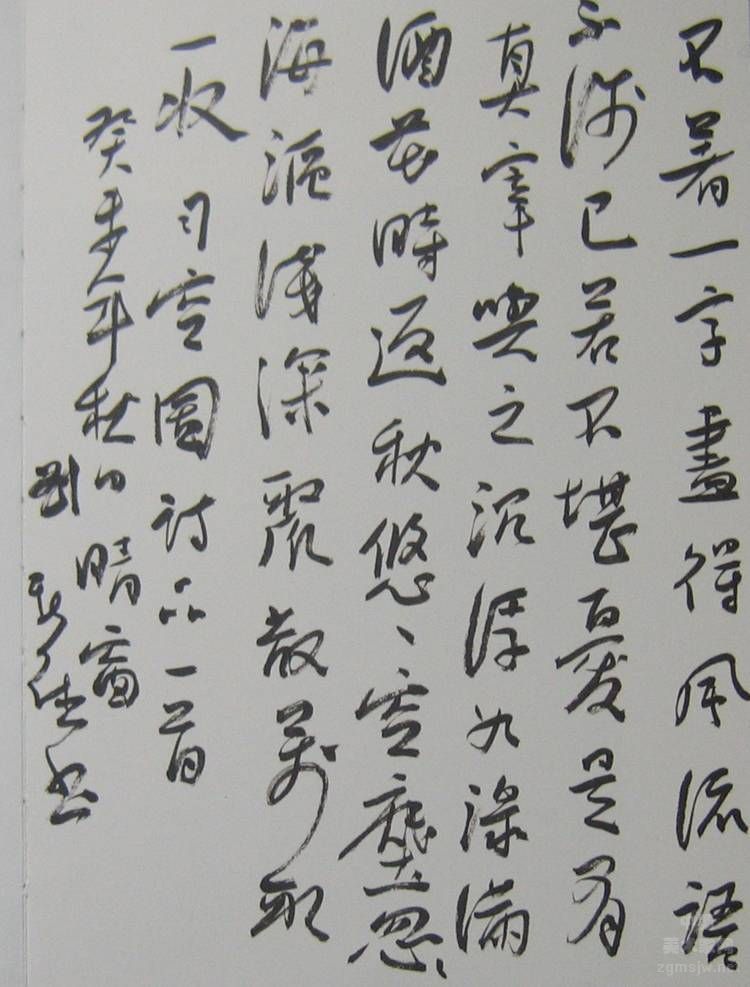 不著一字盡得風流語
不涉已若不堪憂是有
真宰與之沉浮如淥滿
酒花時返秋悠、空塵忽、
海漚淺深聚散萬取
一收 司空圖詩品一首
癸未年秋日晴窗
劉 书
zgmsjw.net